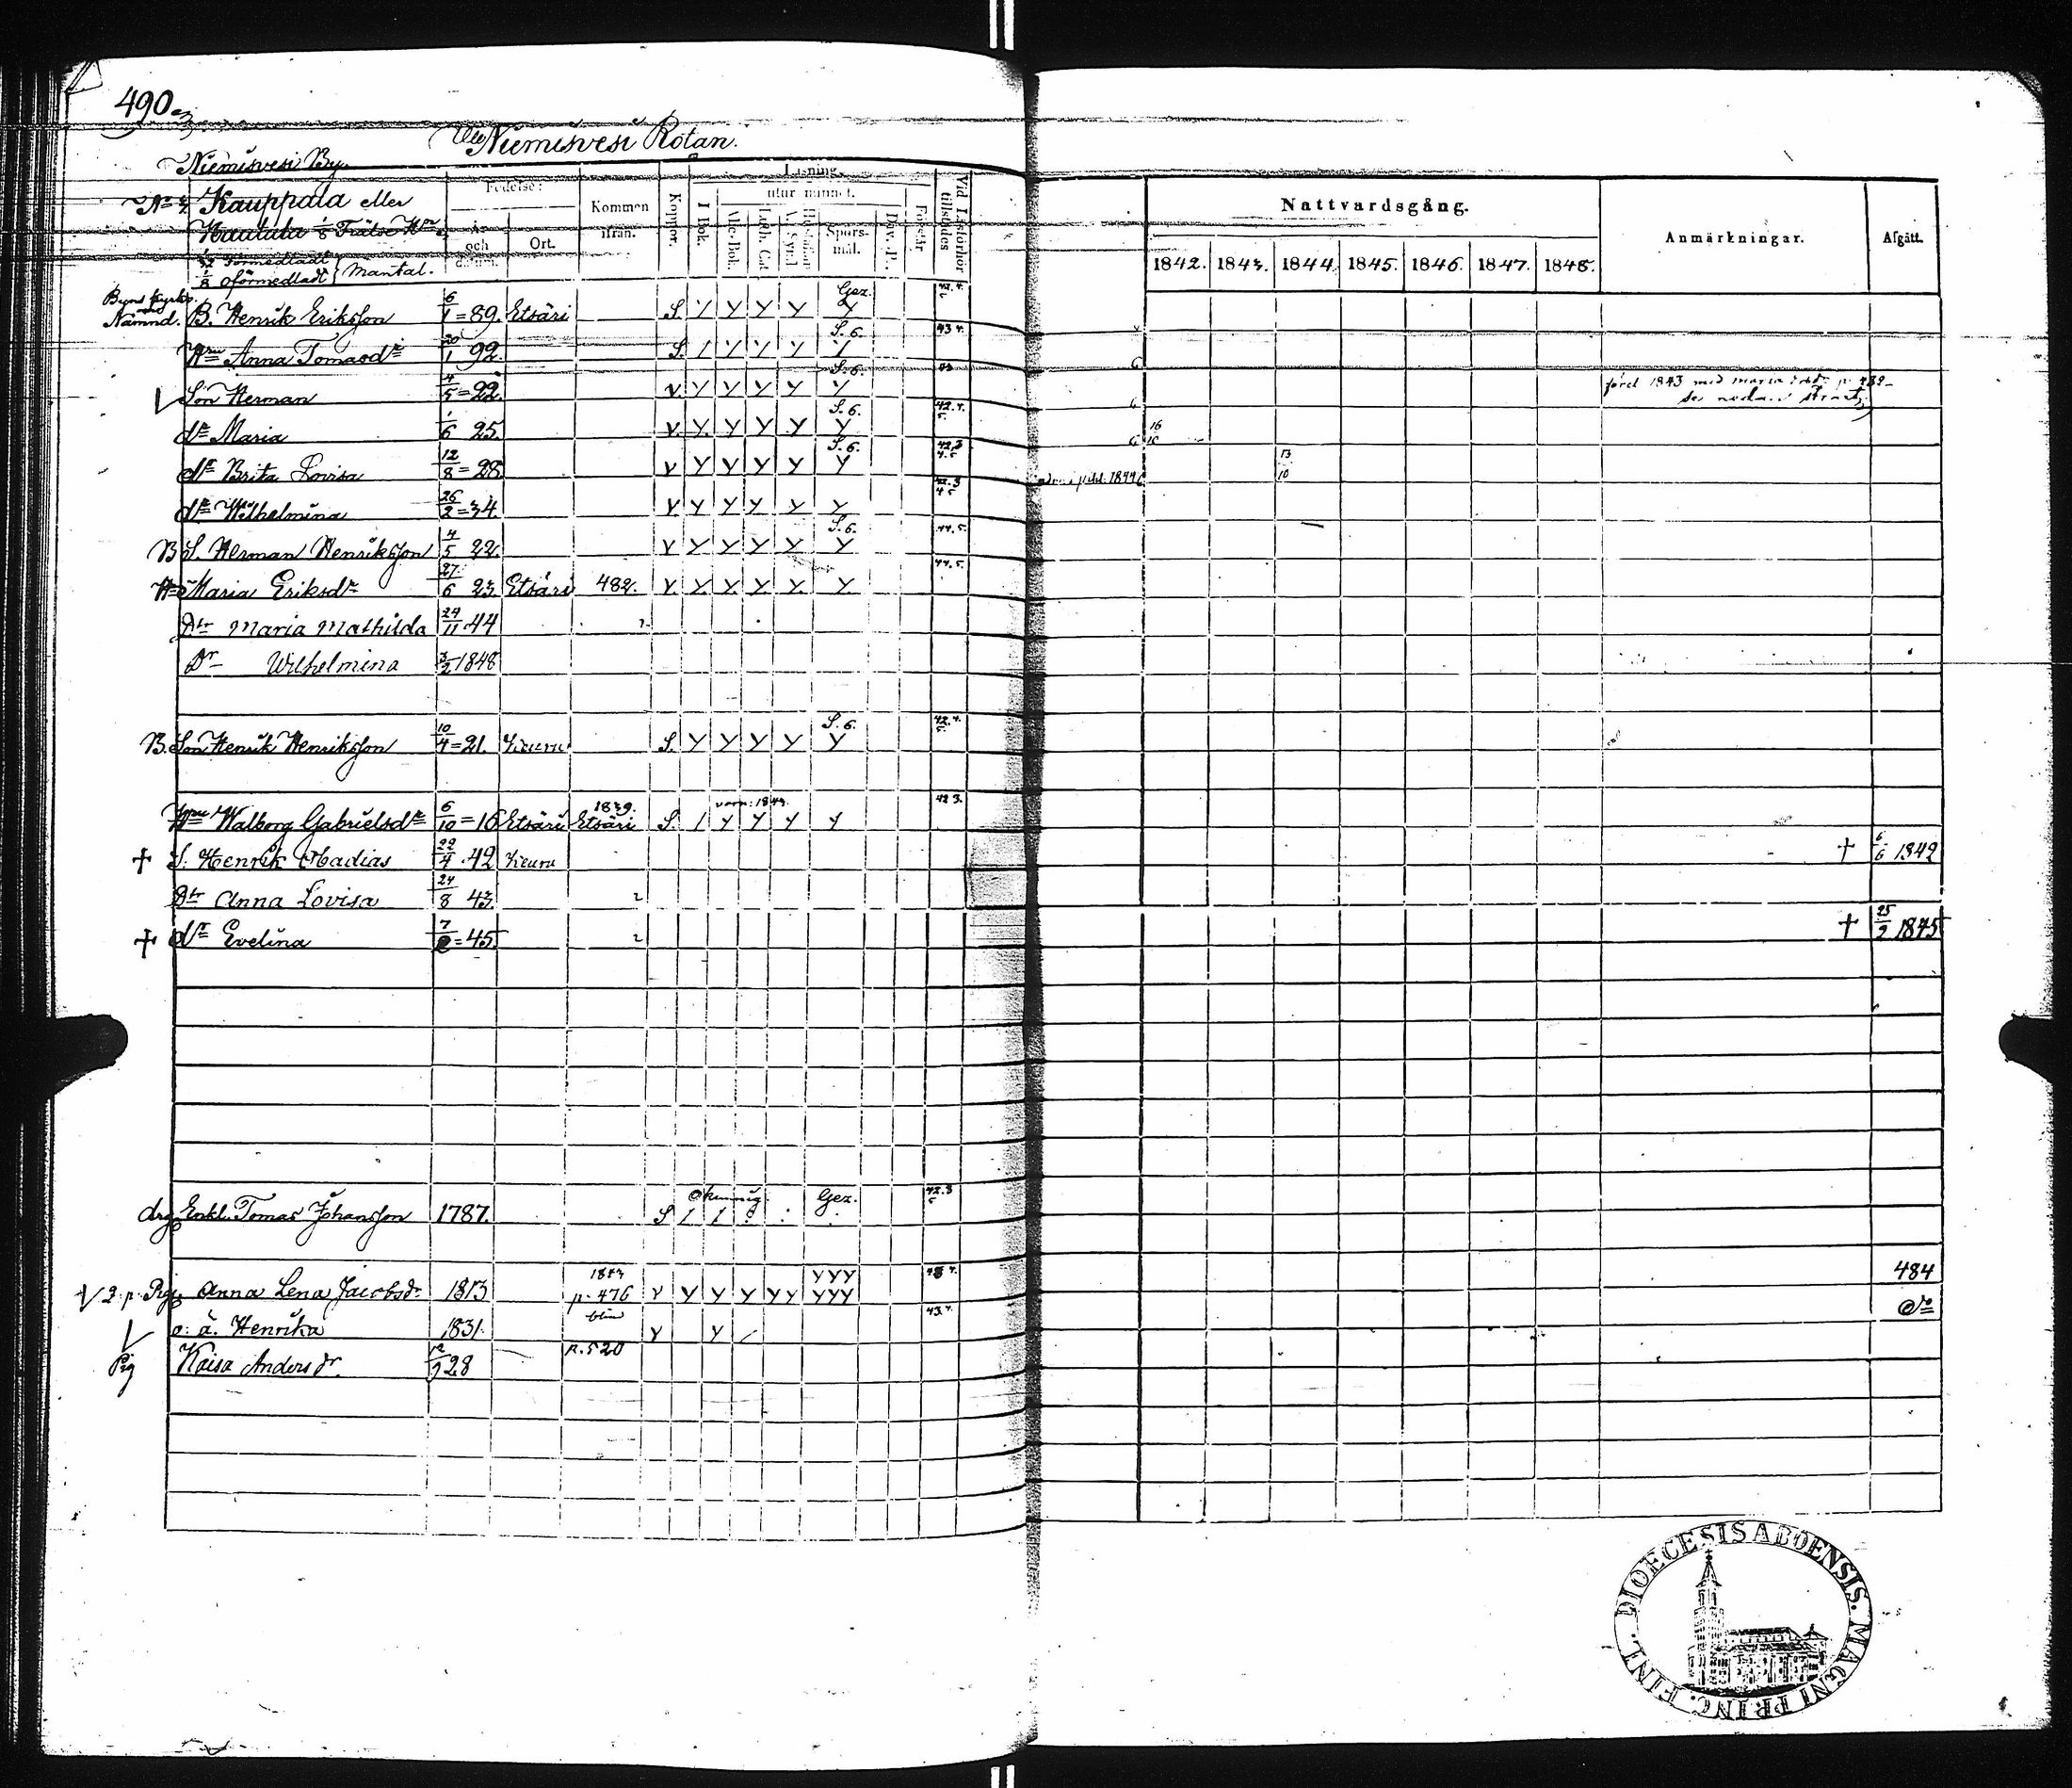 490
Niemisvesi Rotan.
Niemisvesi By.
Kauppala eller
Kautala 1/8 Frälse Hn
1/8 oförmedladt } Mantal.
Födelse:
År och datum.
Ort.
Kommen ifrån.
Koppor.
Läsning.
I Bok.
utur minnet.
Abc-Bok.
Luth. Cat.
Spörs-mål.
Dav. P.
Förstår
Vid Läsförhör tillstädes
Nattvardsgång.
1842. 1843. 1844. 1845. 1846. 1847. 1848.
Anmärkningar.
Afgått.
Nämnd. B. Henrik Eriksson 6/1 = 89. Etsäri S. / Y Y Y Gez. Y 42.4.5
Hru Anna Tomasdr 20/1 92. S. / Y Y Y S.6. Y 43 4.
Son Herman 4/5 = 22. v. Y Y Y Y S.6. Y förd 1843 med maria
dr Maria 1/6 25. v. Y Y Y Y S.6. Y 42.4.5 16 16
dr Brita Lovisa 12/8 = 28 v Y Y Y Y S.6. Y 42.3 4.5 13 10
dr Wilhelmina 26/2 = 34. Y Y Y Y Y Y 42.3 4 5
B S. Herman Henriksson 4/5 22. v Y Y Y Y S.6. Y 44.5.
H Maria Eriksdr 27/6 23 Etsäri 482. v. Y Y Y Y Y 44.5.
Dtr Maria Mathilda 24/11 .44
Dr Wilhelmina 3/2 1848
B. Son Henrik Henriksson 10/4 = 21. Keuru S. Y Y Y Y S.6. Y 42.4.5.
Hru Walborg Gabrielsdr 6/10 = 16 Etsäri 1839. Etsäri S. / Y Y Y Y 42 3.
† S. Henrik Abadias 22/4 .42 Keuru † 6/6 1842
Dtr Anna Lovisa 24/8 43.
† dr Evelina 7/2 = 45. † 25/2 1845
drg Enkl. Tomas Johansson 1787. S / / Okunnig Gez. 42.3 5
Anna Lena Jacobsdr 1813 1843 p. 476 v Y Y Y Y Y YYY YYY 484
o. ä. Henrika 1831. Y Y 43.4. do
Pig Kaisa Anders dr. 28 p. 520
DIOECESIS ABOENSIS. MAGNI PRINC. FINL.